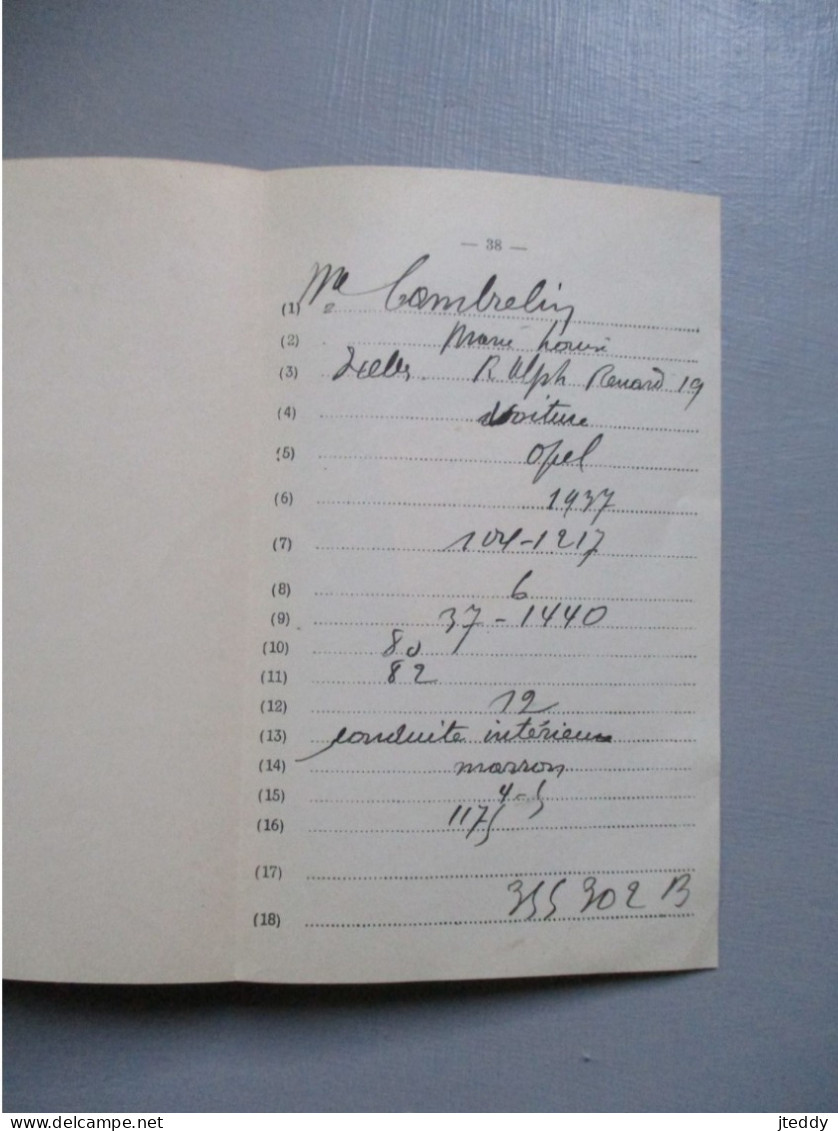 — 38 —
(1) Me Cambrelin
(2) Marie Louise
(3) Ixelles R Alph Renard 19
(4) Voiture
(5) Opel
(6) 1937
(7) 104-1217
(8) 6
(9) 37-1440
(10) 80
(11) 82
(12) 12
(13) conduite intérieure
(14) marron
(15) 4-5
(16) 1175
(17)
(18) 355 302 B
delcampe.net
jteddy